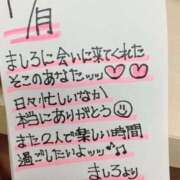 1/月
ましろに会いに来てくれた
そこのあなたッッ♡♡
日々忙しいなか
本当にありがとう☺
また2人で楽しい時間
過ごしたいよッ♪♫
ましろより